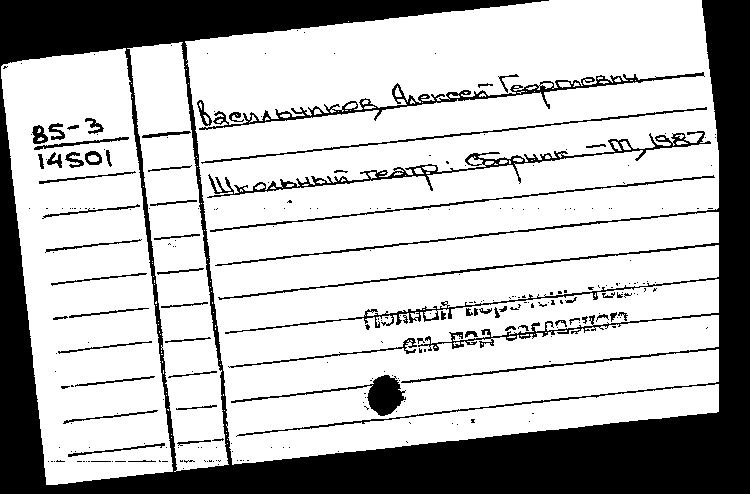 85-3
14501
Васильчиков, Алексей Георгиевич
Школьный театр: Сборник - М, 1987
Полный перечень томов
см. под заглавием